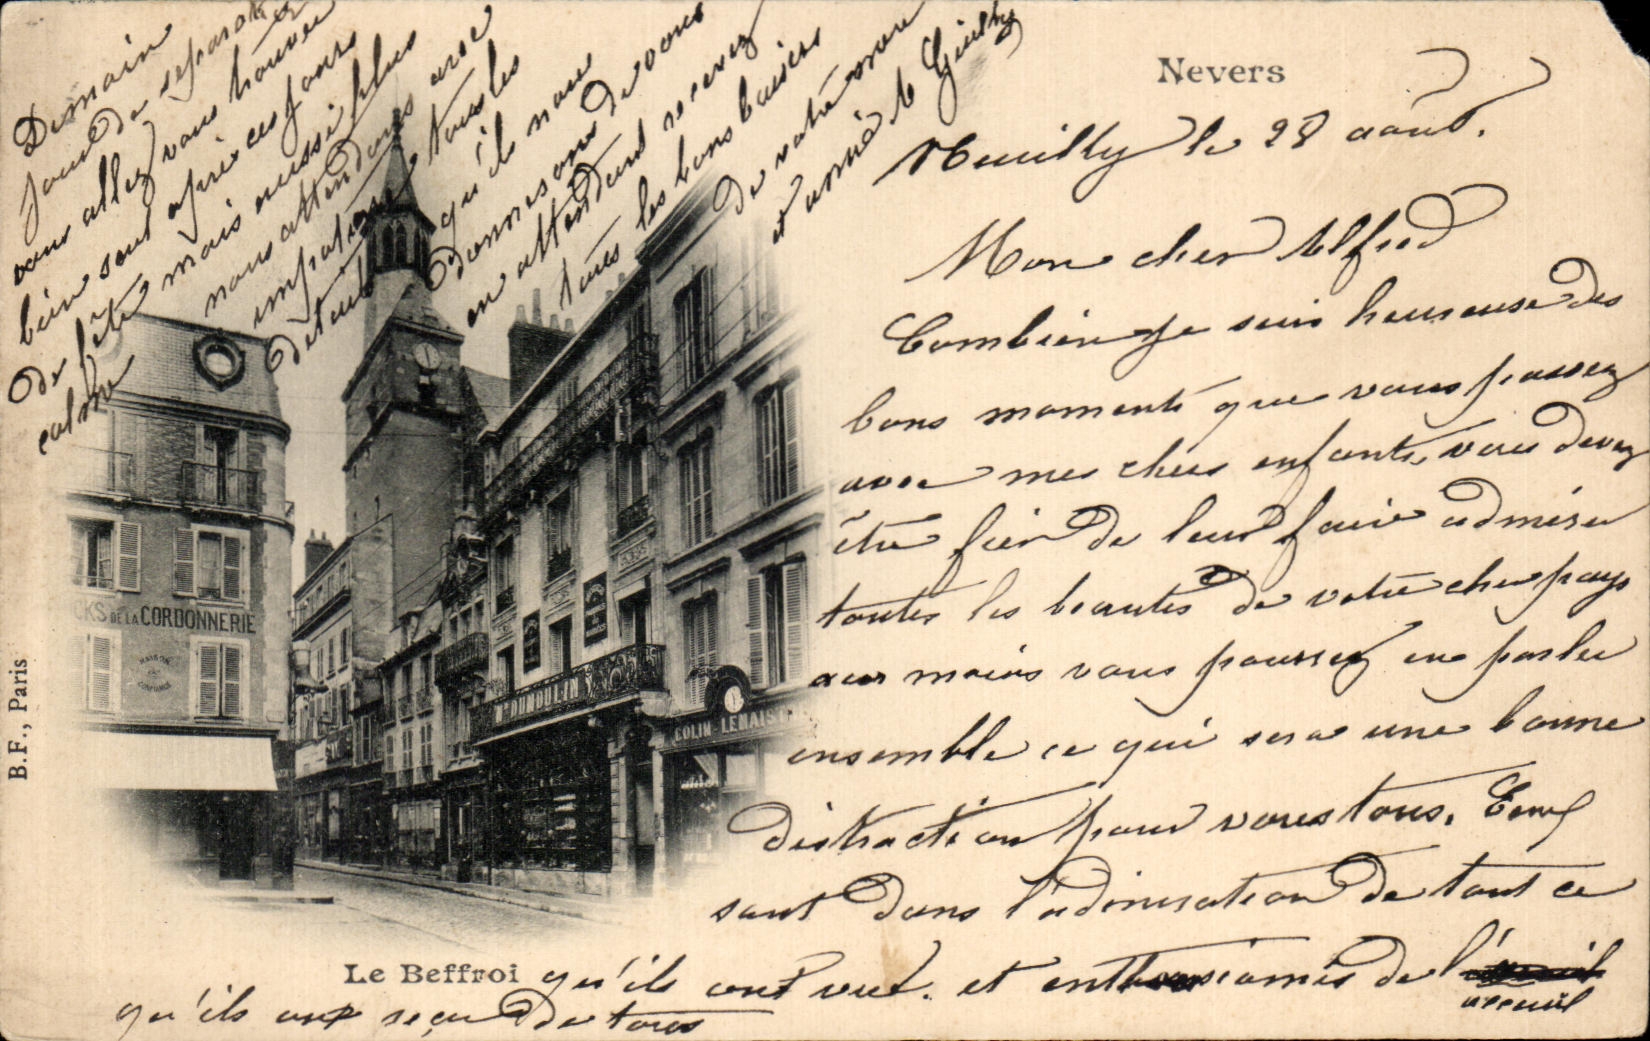 Nevers
Neuilly le 28 août.
Mon cher Alfred
Combien je suis heureuse des
bons moments que vous passez
avec mes chers enfants, vous devez
être fier de leur faire admirer
toutes les beautés de votre cher pays
au moins vous pourrez en parler
ensemble ce qui sera une bonne
distraction pour vous tous. Tous
sont dans l'admiration de tout ce
qu'ils ont vu. et enthousiasmés de l'
accueil
qu'ils ont reçu de tous
Demain
jour de séparation
vous allez vous trouver
bien seul après ces jours
de fête mais aussi plus
calme
nous attendons avec
impatience tous les
détails qu'ils nous
donnerons de vous
en attendant recevez
tous les bons baisers
de votre
et amie
CKS DE LA CORDONNERIE
MAISON
DE
CONFIANCE
Mon DUMOULIN
COLIN-LEMAIS
Le Beffroi
B.F., Paris